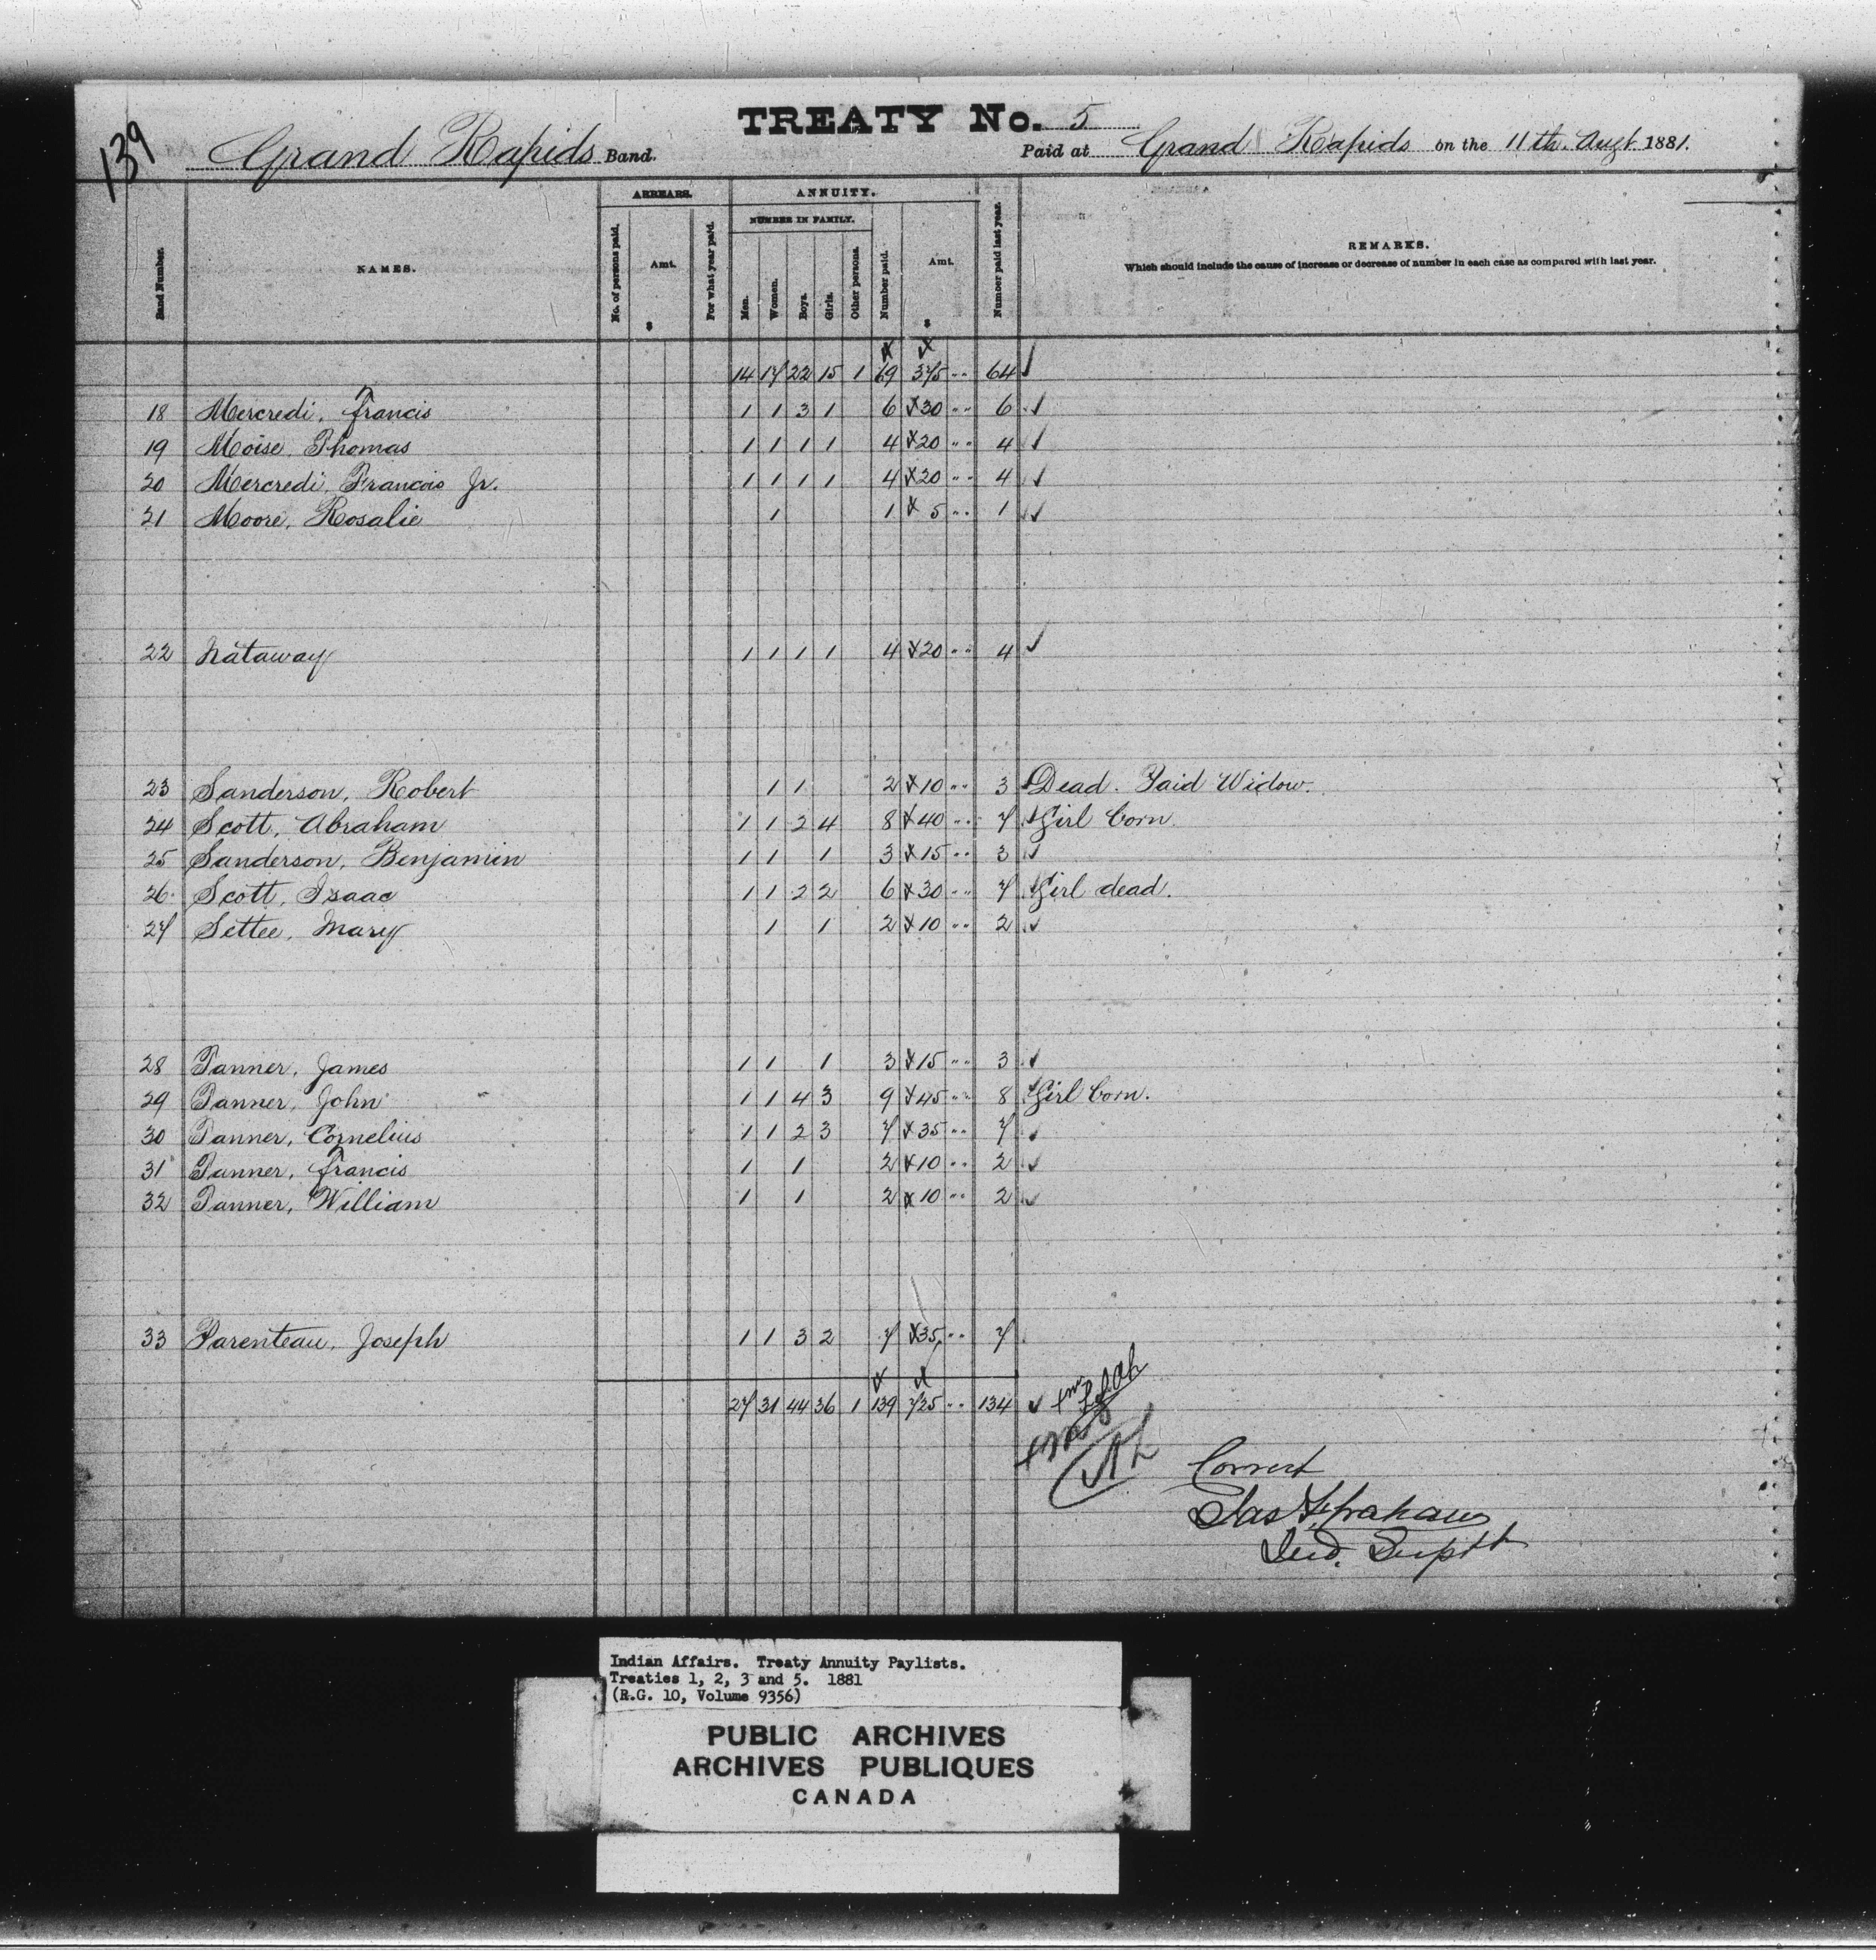 139
TREATY No. 5
Grand Rapids Band. Paid at Grand Rapids on the 11th. Augt 1881.
ARREARS. ANNUITY.
NUMBER IN FAMILY.
Band Number. NAMES. No. of persons paid. Amt. $ For what year paid. Men. Women. Boys. Girls. Other persons. Number paid. Amt. $ Number paid last year. REMARKS.
Which should include the cause of increase or decrease of number in each case as compared with last year.
14 17 22 15 1 69 345 64
18 Mercredi, Francis 1 1 3 1 6 30 6
19 Moise Thomas 1 1 1 1 4 20 4
20 Mercredi, Francois Jr. 1 1 1 1 4 20 4
21 Moore, Rosalie 1 1 5 1
22 Nataway 1 1 1 1 4 20 4
23 Sanderson, Robert 1 1 2 10 3 Dead. Paid Widow.
24 Scott, Abraham 1 1 2 4 8 40 7 Girl born
25 Sanderson, Benjamin 1 1 1 3 15 3
26 Scott, Isaac 1 1 2 2 6 30 7 Girl dead.
27 Settee, Mary 1 1 2 10 2
28 Tanner, James 1 1 1 3 15 3
29 Tanner, John 1 1 4 3 9 45 8 Girl born.
30 Tanner, Cornelius 1 1 2 3 7 35 7
31 Tanner, Francis 1 1 2 10 2
32 Tanner, William 1 1 2 10 2
33 Parenteau, Joseph 1 1 3 2 7 35 7
27 31 44 36 1 139 725 134
Correct
Jas F. Graham
Ind. Suptt
Indian Affairs. Treaty Annuity Paylists.
Treaties 1, 2, 3 and 5. 1881
(R.G. 10, Volume 9356)
PUBLIC ARCHIVES
ARCHIVES PUBLIQUES
CANADA